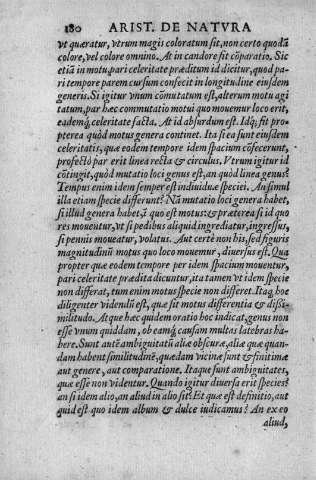 180 ARIST. DE NATVRA
vt quæratur, vtrum magis coloratum sit, non certo quodā
colore, vel colore omnino. At in candore fit cōparatio. Sic
etiā in motu, pari celeritate præditum id dicitur, quod pa-
ri tempore parem cursum confecit in longitudine eiusdem
generis. Si igitur vnùm cōmutatum est, alterum motu agi
tatum, par hæc commutatio motui quo mouemur loco erit,
eademq́; celeritate facta. At id absurdum est. Idq́; fit pro-
pterea quòd motus genera continet. Ita si ea sunt eiusdem
celeritatis, quæ eodem tempore idem spacium cōfecerunt,
profectò par erit linea recta & circulus. Vtrum igitur id
cōtingit, quòd mutatio loci genus est, an quòd linea genus?
Tempus enim idem semper est indiuiduæ speciei. An simul
illa etiam specie differunt? Nā mutatio loci genera habet,
si illud genera habet, ī quo est motus: & præterea si id quo
res mouentur, vt si pedibus aliquid ingrediatur, ingressus,
si pennis moueatur, volatus. Aut certè non his, sed figuris
magnitudinū motus quo loco mouemur, diuersus est. Qua
propter quæ eodem tempore per idem spacium mouentur,
pari celeritate prædita dicuntur, ita tamen vt idem specie
non differat, tum enim motus specie non differet. Itaq; hoc
diligenter videndū est, quæ sit motus differentia & dissi-
militudo. Atque hæc quidem oratio hoc indicat, genus non
esse vnum quiddam, ob eamq́; causam multas latebras ha-
bere. Sunt autē ambiguitatū aliæ obscuræ, aliæ quæ quan-
dam habent similitudinē, quædam vicinæ sunt & finitimæ
aut genere, aut comparatione. Itaque sunt ambiguitates,
quæ esse non videntur. Quando igitur diuersa erit species?
an si idem alio, an aliud in alio sit? Et quæ est definitio, aut
quid est quo idem album & dulce iudicamus? An ex eo
aliud,